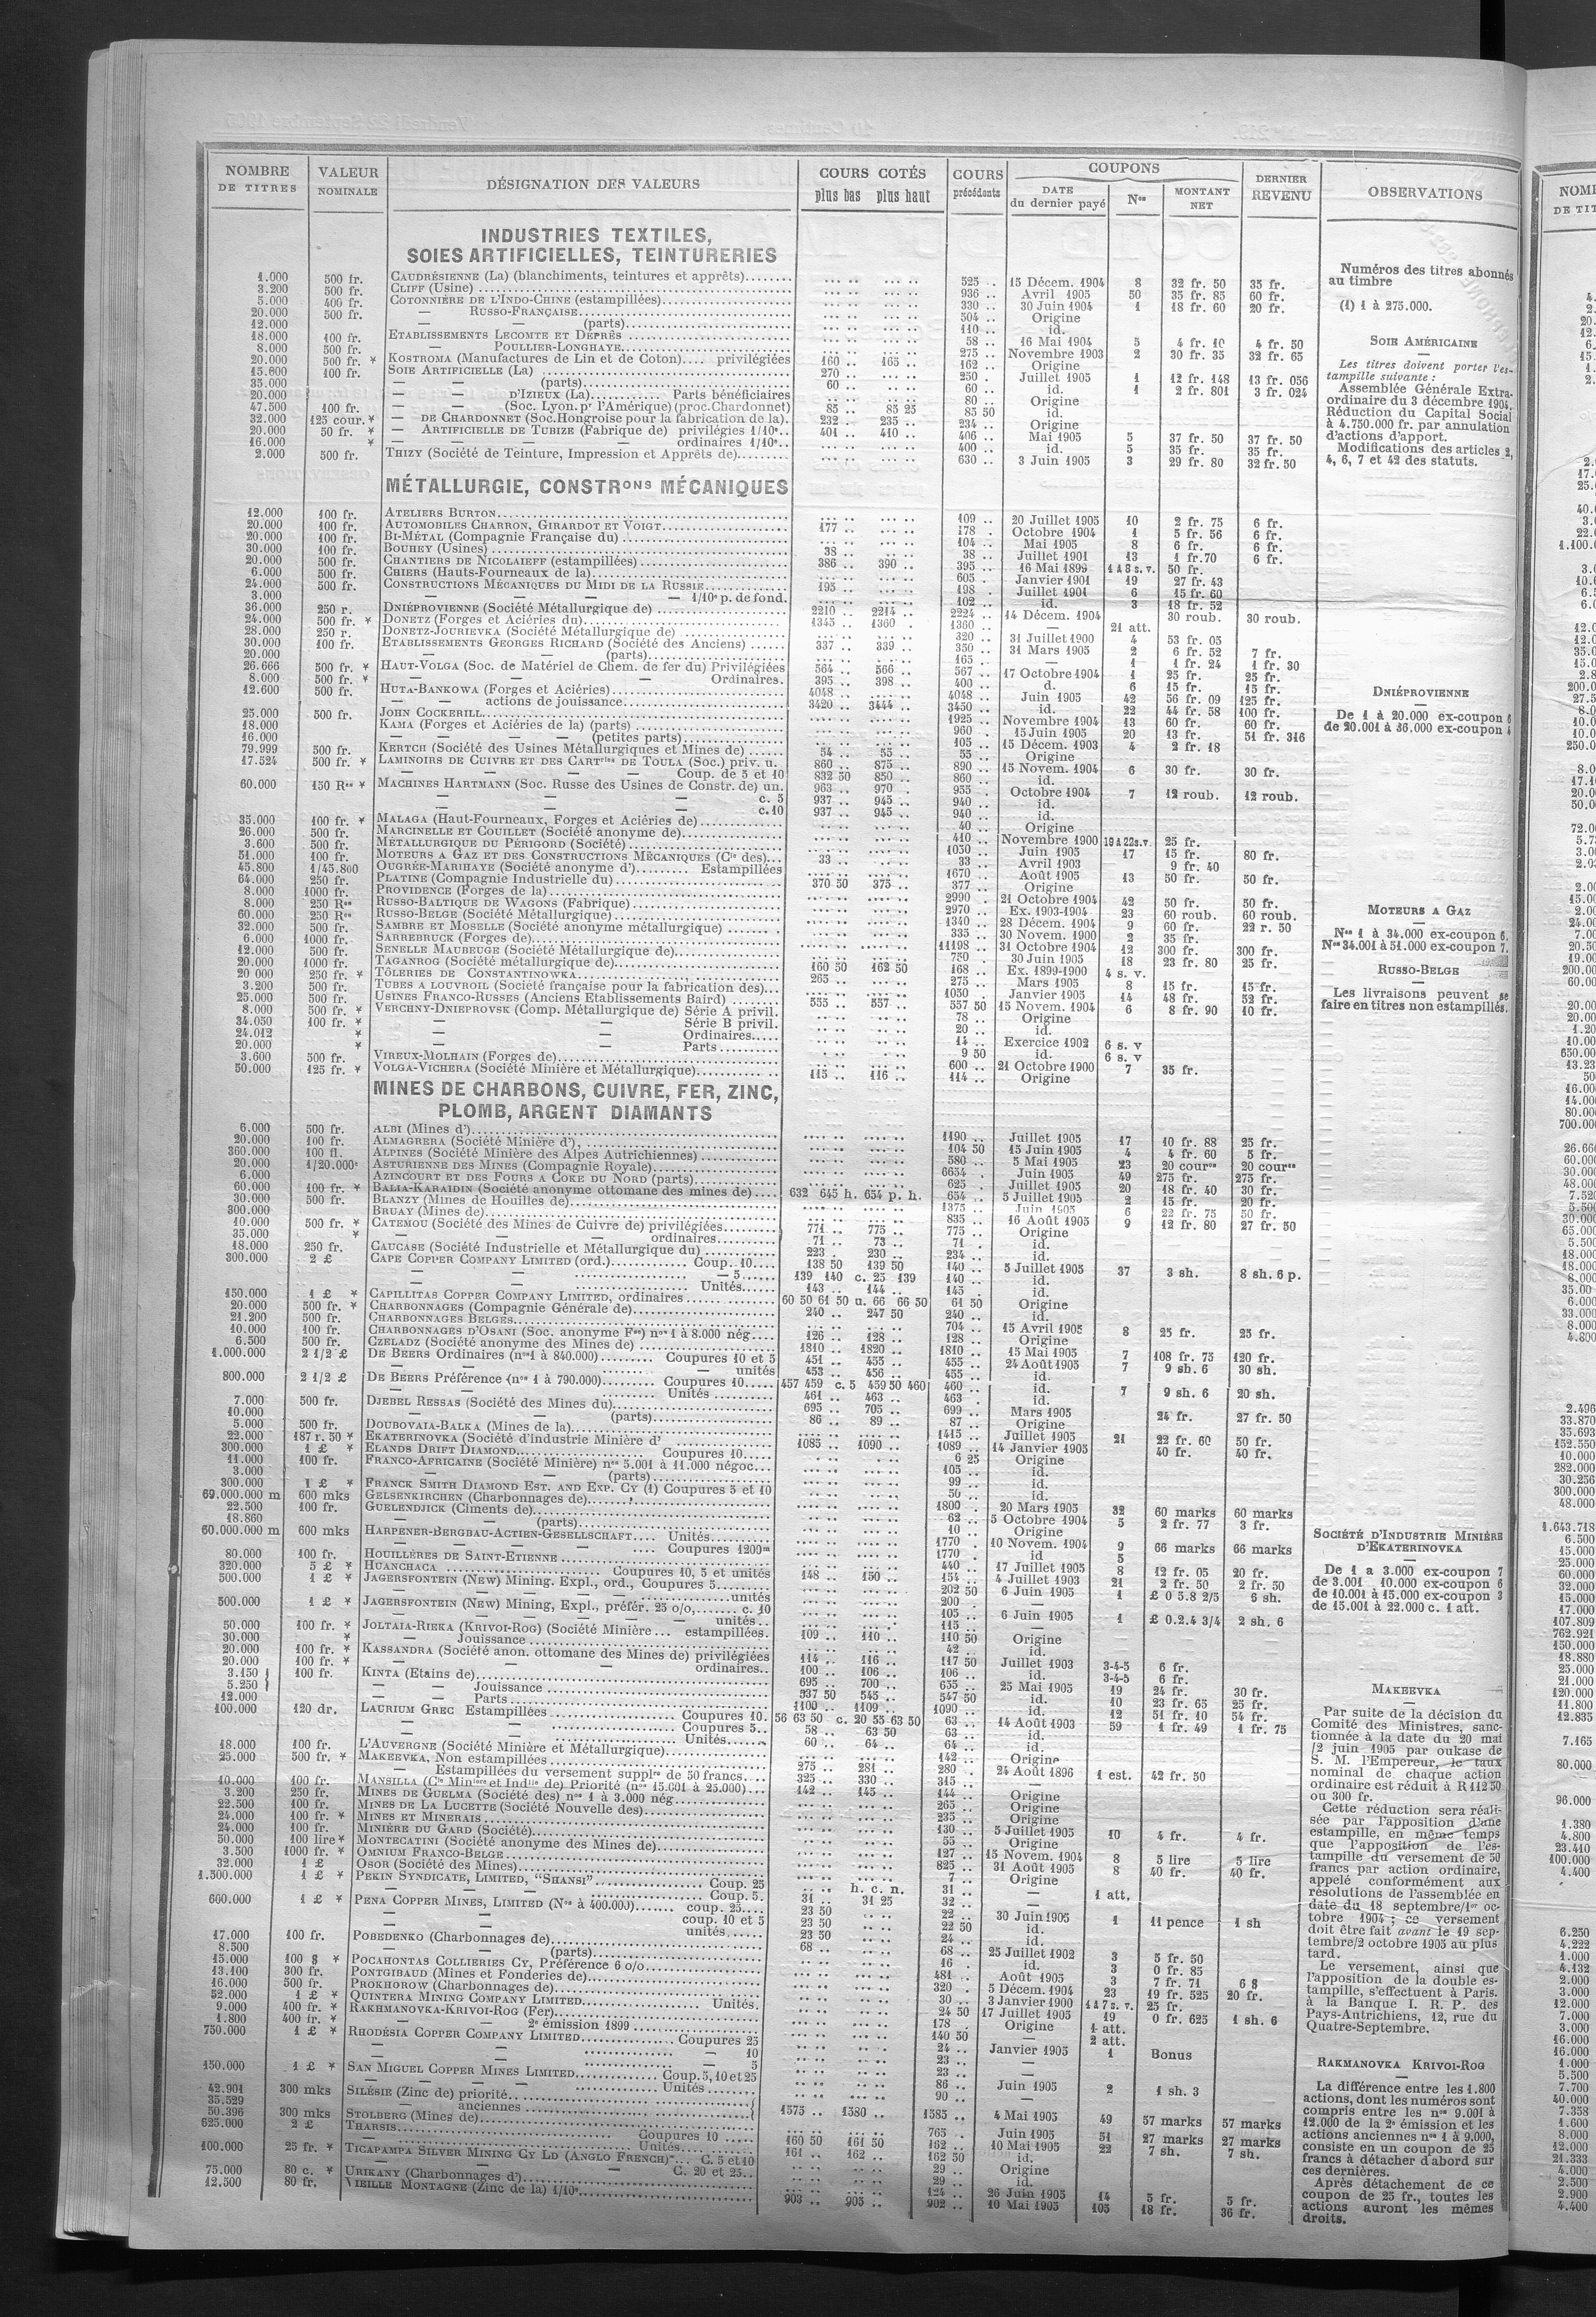 NOMBRE DE TITRES | VALEUR NOMINALE | DÉSIGNATION DES VALEURS | COURS COTÉS plus bas plus haut | COURS précédents | COUPONS DATE du dernier payé | Nos | MONTANT NET | DERNIER REVENU | OBSERVATIONS
INDUSTRIES TEXTILES,
SOIES ARTIFICIELLES, TEINTURERIES
1.000 500 fr. CAUDRÉSIENNE (La) (blanchiments, teintures et apprêts) 525 15 Décem. 1904 8 32 fr. 50 35 fr.
3.200 500 fr. CLIFF (Usine) 936 Avril 1905 50 35 fr. 85 60 fr.
5.000 400 fr. COTONNIÈRE DE L'INDO-CHINE (estampillées) 330 30 Juin 1904 1 18 fr. 60 20 fr.
20.000 500 fr. — RUSSO-FRANÇAISE 504 Origine
12.000 — — (parts) 110 id.
18.000 100 fr. ETABLISSEMENTS LECOMTE ET DEPRÈS 58 16 Mai 1904 5 4 fr. 10 4 fr. 50
8.000 500 fr. — POULLIER-LONGHAYE 275 Novembre 1903 2 30 fr. 35 32 fr. 65
20.000 500 fr. * KOSTROMA (Manufactures de Lin et de Coton) privilégiées 160 165 162 Origine
15.600 100 fr. SOIE ARTIFICIELLE (La) 270 250 Juillet 1905 1 12 fr. 148 13 fr. 056
35.000 — — (parts) 60 60 id. 1 2 fr. 801 3 fr. 024
20.000 — — D'IZIEUX (La) Parts bénéficiaires 80 Origine
47.500 100 fr. — — (Soc. Lyon. pr l'Amérique) (proc. Chardonnet) 85 85 25 85 50 id.
32.000 125 cour. * — DE CHARDONNET (Soc. Hongroise pour la fabrication de la) 232 235 234 Origine
20.000 50 fr. * — ARTIFICIELLE DE TUBIZE (Fabrique de) privilégies 1/10e 401 410 406 Mai 1905 5 37 fr. 50 37 fr. 50
16.000 * — — — ordinaires 1/10e 400 id. 5 35 fr. 35 fr.
2.000 500 fr. THIZY (Société de Teinture, Impression et Apprêts de) 630 3 Juin 1905 3 29 fr. 80 32 fr. 50
MÉTALLURGIE, CONSTRons MÉCANIQUES
12.000 100 fr. ATELIERS BURTON 109 20 Juillet 1905 10 2 fr. 75 6 fr.
20.000 100 fr. AUTOMOBILES CHARRON, GIRARDOT ET VOIGT 177 178 Octobre 1904 1 5 fr. 56 6 fr.
20.000 100 fr. BI-MÉTAL (Compagnie Française du) 104 Mai 1905 8 6 fr. 6 fr.
30.000 100 fr. BOUHEY (Usines) 38 38 Juillet 1901 13 1 fr. 70 6 fr.
20.000 500 fr. CHANTIERS DE NICOLAIEFF (estampillées) 386 390 395 16 Mai 1899 1 à 8 s. v. 50 fr.
6.000 500 fr. CHIERS (Hauts-Fourneaux de la) 605 Janvier 1901 19 27 fr. 43
24.000 500 fr. CONSTRUCTIONS MÉCANIQUES DU MIDI DE LA RUSSIE 195 198 Juillet 1901 6 15 fr. 60
3.000 — — — 1/10e p. de fond. 102 id. 3 18 fr. 52
36.000 250 r. DNIÉPROVIENNE (Société Métallurgique de) 2210 2214 2224 14 Décem. 1904 30 roub. 30 roub.
24.000 500 fr. * DONETZ (Forges et Aciéries du) 1345 1360 1360 — 21 att.
28.000 250 r. DONETZ-JOURIEVKA (Société Métallurgique de) 320 31 Juillet 1900 4 53 fr. 05
30.000 100 fr. ETABLISSEMENTS GEORGES RICHARD (Société des Anciens) 337 339 350 31 Mars 1905 2 6 fr. 52 7 fr.
20.000 — (parts) 165 — 1 1 fr. 24 1 fr. 30
26.666 500 fr. * HAUT-VOLGA (Soc. de Matériel de Chem. de fer du) Privilégiées 564 566 567 17 Octobre 1904 1 25 fr. 25 fr.
8.000 500 fr. * — — Ordinaires. 395 398 400 d. 6 15 fr. 15 fr.
12.600 500 fr. HUTA-BANKOWA (Forges et Aciéries) 4048 4048 Juin 1905 42 56 fr. 09 125 fr.
— — actions de jouissance 3420 3444 3450 id. 22 44 fr. 58 100 fr.
25.000 500 fr. JOHN COCKERILL 1925 Novembre 1904 13 60 fr. 60 fr.
18.000 KAMA (Forges et Aciéries de la) (parts) 960 15 Juin 1905 20 13 fr. 51 fr. 316
16.000 — — — (petites parts) 105 15 Décem. 1903 4 2 fr. 18
79.999 500 fr. KERTCH (Société des Usines Métallurgiques et Mines de) 54 55 55 Origine
17.524 500 fr. * LAMINOIRS DE CUIVRE ET DES CARTries DE TOULA (Soc.) priv. u. 860 875 890 15 Novem. 1904 6 30 fr. 30 fr.
— — Coup. de 5 et 10 832 50 850 860 id.
60.000 150 Rs * MACHINES HARTMANN (Soc. Russe des Usines de Constr. de) un. 963 970 955 Octobre 1904 7 12 roub. 12 roub.
— — — c. 5 937 945 940 id.
— — — c. 10 937 945 940 id.
35.000 100 fr. * MALAGA (Haut-Fourneaux, Forges et Aciéries de) 40 Origine
26.000 500 fr. MARCINELLE ET COUILLET (Société anonyme de) 410 Novembre 1900 19 à 22 s. v. 25 fr.
3.600 500 fr. MÉTALLURGIQUE DU PÉRIGORD (Société) 1050 Juin 1905 17 15 fr. 80 fr.
51.000 100 fr. MOTEURS A GAZ ET DES CONSTRUCTIONS MÉCANIQUES (Cie des) 33 33 Avril 1903 9 fr. 40
45.800 1/45.800 OUGRÉE-MARIHAYE (Société anonyme d') Estampillées 1670 Août 1905 13 50 fr. 50 fr.
64.000 250 fr. PLATINE (Compagnie Industrielle du) 370 50 375 377 Origine
8.000 1000 fr. PROVIDENCE (Forges de la) 2990 21 Octobre 1904 42 50 fr. 50 fr.
8.000 250 Rs RUSSO-BALTIQUE DE WAGONS (Fabrique) 2970 Ex. 1903-1904 23 60 roub. 60 roub.
60.000 250 Rs RUSSO-BELGE (Société Métallurgique) 1340 28 Décem. 1904 9 60 fr. 22 r. 50
32.000 500 fr. SAMBRE ET MOSELLE (Société anonyme métallurgique) 335 30 Novem. 1900 2 35 fr.
6.000 1000 fr. SARREBRUCK (Forges de) 11198 31 Octobre 1904 12 300 fr. 300 fr.
12.000 500 fr. SENELLE MAUBEUGE (Société Métallurgique de) 750 30 Juin 1905 18 23 fr. 80 25 fr.
20.000 1000 fr. TAGANROG (Société métallurgique de) 160 50 162 50 168 Ex. 1899-1900 4 s. v.
20 000 250 fr. * TÔLERIES DE CONSTANTINOWKA 265 275 Mars 1905 8 15 fr. 15 fr.
3.200 500 fr. TUBES A LOUVROIL (Société française pour la fabrication des) 1050 Janvier 1905 14 48 fr. 52 fr.
25.000 500 fr. USINES FRANCO-RUSSES (Anciens Etablissements Baird) 555 557 557 50 15 Novem. 1904 6 8 fr. 90 10 fr.
8.000 500 fr. * VERCHNY-DNIEPROVSK (Comp. Métallurgique de) Série A privil. 78 Origine
34.050 100 fr. * — — Série B privil. 20 id.
24.012 * — — Ordinaires 14 Exercice 1902 6 s. v
20.000 * — — Parts 9 50 id. 6 s. v
3.600 500 fr. VIREUX-MOLHAIN (Forges de) 600 21 Octobre 1900 7 35 fr.
50.000 125 fr. * VOLGA-VICHERA (Société Minière et Métallurgique) 115 116 114 Origine
MINES DE CHARBONS, CUIVRE, FER, ZINC,
PLOMB, ARGENT DIAMANTS
6.000 500 fr. ALBI (Mines d') 1190 Juillet 1905 17 10 fr. 88 25 fr.
20.000 100 fr. ALMAGRERA (Société Minière d') 104 50 15 Juin 1905 4 4 fr. 60 5 fr.
360.000 100 fl. ALPINES (Société Minière des Alpes Autrichiennes) 580 5 Mai 1905 23 20 cours 20 cours
20.000 1/20.000e ASTURIENNE DES MINES (Compagnie Royale) 6654 Juin 1905 49 275 fr. 275 fr.
6.000 AZINCOURT ET DES FOURS A COKE DU NORD (parts) 625 Juillet 1905 20 18 fr. 40 30 fr.
60.000 100 fr. * BALIA-KARAIDIN (Société anonyme ottomane des mines de) 632 645 h. 654 p. h. 654 5 Juillet 1905 2 15 fr. 20 fr.
30.000 500 fr. BLANZY (Mines de Houilles de) 1375 Juin 1905 6 22 fr. 75 50 fr.
300.000 BRUAY (Mines de) 835 16 Août 1905 9 12 fr. 80 27 fr. 50
10.000 500 fr. * CATEMOU (Société des Mines de Cuivre de) privilégiées 771 775 775 Origine
35.000 * — — ordinaires 71 73 71 id.
18.000 250 fr. CAUCASE (Société Industrielle et Métallurgique du) 223 230 234 id.
300.000 2 £ CAPE COPPER COMPANY LIMITED (ord.) Coup. 10 138 50 139 50 140 5 Juillet 1905 37 3 sh. 8 sh. 6 p.
— — — 5 139 140 c. 25 139 140 id.
— — Unités 143 144 145 id.
150.000 1 £ * CAPILLITAS COPPER COMPANY LIMITED, ordinaires 60 50 61 50 u. 66 66 50 61 50 Origine
20.000 500 fr. * CHARBONNAGES (Compagnie Générale de) 240 247 50 240 id.
21.200 500 fr. CHARBONNAGES BELGES 704 15 Avril 1905 8 25 fr. 25 fr.
10.000 100 fr. CHARBONNAGES D'OSANI (Soc. anonyme Fse) nos 1 à 8.000 nég. 126 128 128 Origine
6.500 500 fr. CZELADZ (Société anonyme des Mines de) 1810 1820 1810 15 Mai 1905 7 108 fr. 75 120 fr.
1.000.000 2 1/2 £ DE BEERS Ordinaires (nos 1 à 840.000) Coupures 10 et 5 451 455 455 24 Août 1905 7 9 sh. 6 30 sh.
— — unités 453 456 455 id.
800.000 2 1/2 £ DE BEERS Préférence (nos 1 à 790.000) Coupures 10 457 459 c. 5 459 50 460 460 id. 7 9 sh. 6 20 sh.
— — Unités 461 463 463 id.
7.000 500 fr. DJEBEL RESSAS (Société des Mines du) 695 705 699 Mars 1905 24 fr. 27 fr. 50
10.000 — — (parts) 86 89 87 Origine
5.000 500 fr. DOUBOVAIA-BALKA (Mines de la) 1415 Juillet 1905 21 22 fr. 60 50 fr.
22.000 187 r. 50 * EKATERINOVKA (Société d'Industrie Minière d' 1085 1090 1089 14 Janvier 1905 40 fr. 40 fr.
300.000 1 £ * ELANDS DRIFT DIAMOND Coupures 10 6 25 Origine
11.000 100 fr. FRANCO-AFRICAINE (Société Minière) nos 5.001 à 11.000 négoc. 105 id.
3.000 — — (parts) 99 id.
300.000 1 £ * FRANCK SMITH DIAMOND EST. AND EXP. CY (1) Coupures 5 et 10 50 id.
69.000.000 m 600 mks GELSENKIRCHEN (Charbonnages de) 1800 20 Mars 1905 32 60 marks 60 marks
22.500 100 fr. GUELENDJICK (Ciments de) 62 5 Octobre 1904 5 2 fr. 77 3 fr.
18.860 — — (parts) 10 Origine
60.000.000 m 600 mks HARPENER-BERGBAU-ACTIEN-GESELLSCHAFT Unités 1770 10 Novem. 1904 9 66 marks 66 marks
— — Coupures 1200m 1770 id 5
80.000 100 fr. HOUILLÈRES DE SAINT-ETIENNE 440 17 Juillet 1905 8 12 fr. 05 20 fr.
320.000 5 £ * HUANCHACA Coupures 10, 5 et unités 148 150 154 4 Juillet 1903 21 2 fr. 50 2 fr. 50
500.000 1 £ * JAGERSFONTEIN (New) Mining. Expl., ord., Coupures 5 202 50 6 Juin 1905 1 £ 0 5.8 2/5 6 sh.
— — unités 200 —
500.000 1 £ * JAGERSFONTEIN (New) Mining, Expl., préfér. 25 o/o, c. 10 105 6 Juin 1905 1 £ 0.2.4 3/4 2 sh. 6
— — unités 115 —
50.000 100 fr. * JOLTAIA-RIEKA (KRIVOI-ROG) (Société Minière estampillées. 109 110 110 50 Origine
30.000 * — Jouissance 42 id.
20.000 100 fr. * KASSANDRA (Société anon. ottomane des Mines de) privilégiées 114 116 117 50 Juillet 1903 3-4-5 6 fr.
20.000 100 fr. * — — ordinaires 100 106 106 id. 3-4-5 6 fr.
3.150 } 100 fr. KINTA (Etains de) 695 700 655 25 Mai 1905 19 24 fr. 30 fr.
5.250 } — — Jouissance 537 50 545 547 50 id. 10 23 fr. 65 25 fr.
12.000 — — Parts 1100 1109 1090 id. 12 51 fr. 10 54 fr.
100.000 120 dr. LAURIUM GREC Estampillées Coupures 10. 56 63 50 c. 20 55 63 50 63 14 Août 1903 59 1 fr. 49 1 fr. 75
— — Coupures 5 58 63 50 63 id.
— — Unités 60 64 64 id.
18.000 100 fr. L'AUVERGNE (Société Minière et Métallurgique) 142 Origine
25.000 500 fr. * MAKEEVKA, Non estampillées 275 281 280 24 Août 1896 1 est. 42 fr. 50
— Estampillées du versement supplre de 50 francs 325 330 315 —
10.000 100 fr. MANSILLA (Cie Minière et Indlle de) Priorité (nos 15.601 à 25.000) 142 145 144 Origine
3.200 250 fr. MINES DE GUELMA (Société des) nos 1 à 3.000 nég. 265 Origine
22.500 100 fr. MINES DE LA LUCETTE (Société Nouvelle des) 235 Origine
24.000 100 fr. * MINES ET MINERAIS 130 5 Juillet 1905 10 4 fr. 4 fr.
24.000 100 fr. MINIÈRE DU GARD (Société) 55 Origine
50.000 100 lire * MONTECATINI (Société anonyme des Mines de) 127 15 Novem. 1904 8 5 lire 5 lire
3.500 1000 fr. * OMNIUM FRANCO-BELGE 825 31 Août 1905 8 40 fr. 40 fr.
32.000 1 £ OSOR (Société des Mines) 7 Origine
1.500.000 1 £ * PEKIN SYNDICATE, LIMITED, "SHANSI" Coup. 25 h. c. n. 31 — 1 att.
— — Coup. 5. 31 31 25 32 —
600.000 1 £ * PENA COPPER MINES, LIMITED (Nos à 400.000) coup. 25 23 50 22 30 Juin 1905 1 11 pence 1 sh
— — coup. 10 et 5 23 50 22 50 id.
— — unités 23 50 24 id.
17.000 100 fr. POBEDENKO (Charbonnages de) 68 68 25 Juillet 1902 3 5 fr. 50
8.500 — — (parts) 16 id. 3 0 fr. 85
15.000 100 $ * POCAHONTAS COLLIERIES CY, Préférence 6 o/o 481 Août 1905 3 7 fr. 71 6 $
13.100 300 fr. PONTGIBAUD (Mines et Fonderies de) 320 5 Décem. 1904 23 19 fr. 525 20 fr.
16.000 500 fr. PROKHOROW (Charbonnages de) 30 3 Janvier 1900 1 à 7 s. v. 25 fr.
52.000 1 £ * QUINTERA MINING COMPANY LIMITED Unités. 24 50 17 Juillet 1905 19 0 fr. 625 1 sh. 6
9.000 400 fr. * RAKHMANOVKA-KRIVOI-ROG (Fer) 178 Origine 1 att.
1.800 400 fr. * — 2e émission 1899 140 50 2 att.
750.000 1 £ * RHODÉSIA COPPER COMPANY LIMITED Coupures 25 24 Janvier 1905 1 Bonus
— — — 10 23
— — — 5 23
150.000 1 £ * SAN MIGUEL COPPER MINES LIMITED Coup. 5, 10 et 25 86 Juin 1905 2 1 sh. 3
— — Unités 90 —
42.901 300 mks SILÉSIE (Zinc de) priorité 1575 1580 1585 4 Mai 1905 49 57 marks 57 marks
35.529 — anciennes
50.396 300 mks STOLBERG (Mines de) 765 Juin 1905 51 27 marks 27 marks
625.000 2 £ THARSIS Coupures 10 160 50 161 50 162 10 Mai 1905 22 7 sh. 7 sh.
— Unités 161 162 162 50 id.
100.000 25 fr. * TICAPAMPA SILVER MINING CY LD (ANGLO FRENCH) C. 5 et 10 29 Origine
— — C. 20 et 25 29 id.
75.000 80 c. * URIKANY (Charbonnages d') 124 26 Juin 1905 14 5 fr. 5 fr.
12.500 80 fr. VIEILLE MONTAGNE (Zinc de la) 1/10e 903 905 902 10 Mai 1905 105 18 fr. 36 fr.
Numéros des titres abonnés
au timbre
(1) 1 à 275.000.
SOIE AMÉRICAINE
Les titres doivent porter l'es-
tampille suivante :
Assemblée Générale Extra-
ordinaire du 3 décembre 1904.
Réduction du Capital Social
à 4.750.000 fr. par annulation
d'actions d'apport.
Modifications des articles 2,
4, 6, 7 et 42 des statuts.
DNIÉPROVIENNE
De 1 à 20.000 ex-coupon 6
de 20.001 à 36.000 ex-coupon 4
MOTEURS A GAZ
Nos 1 à 34.000 ex-coupon 6.
Nos 34.001 à 51.000 ex-coupon 7.
RUSSO-BELGE
Les livraisons peuvent se
faire en titres non estampillés.
SOCIÉTÉ D'INDUSTRIE MINIÈRE
D'EKATERINOVKA
De 1 a 3.000 ex-coupon 7
de 3.001 10.000 ex-coupon 6
de 10.001 à 15.000 ex-coupon 3
de 15.001 à 22.000 c. 1 att.
MAKEEVKA
Par suite de la décision du
Comité des Ministres, sanc-
tionnée à la date du 20 mai
/2 juin 1905 par oukase de
S. M. l'Empereur, le taux
nominal de chaque action
ordinaire est réduit à R 112 50
ou 300 fr.
Cette réduction sera réali-
sée par l'apposition d'une
estampille, en même temps
que l'apposition de l'es-
tampille du versement de 50
francs par action ordinaire,
appelé conformément aux
résolutions de l'assemblée en
date du 18 septembre/1er oc-
tobre 1904 ; ce versement
doit être fait avant le 19 sep-
tembre/2 octobre 1905 au plus
tard.
Le versement, ainsi que
l'apposition de la double es-
tampille, s'effectuent à Paris.
à la Banque I. R. P. des
Pays-Autrichiens, 12, rue du
Quatre-Septembre.
RAKMANOVKA KRIVOI-ROG
La différence entre les 1.800
actions, dont les numéros sont
compris entre les nos 9.001 à
12.000 de la 2e émission et les
actions anciennes nos 1 à 9.000,
consiste en un coupon de 25
francs à détacher d'abord sur
ces dernières.
Après détachement de ce
coupon de 25 fr., toutes les
actions auront les mêmes
droits.